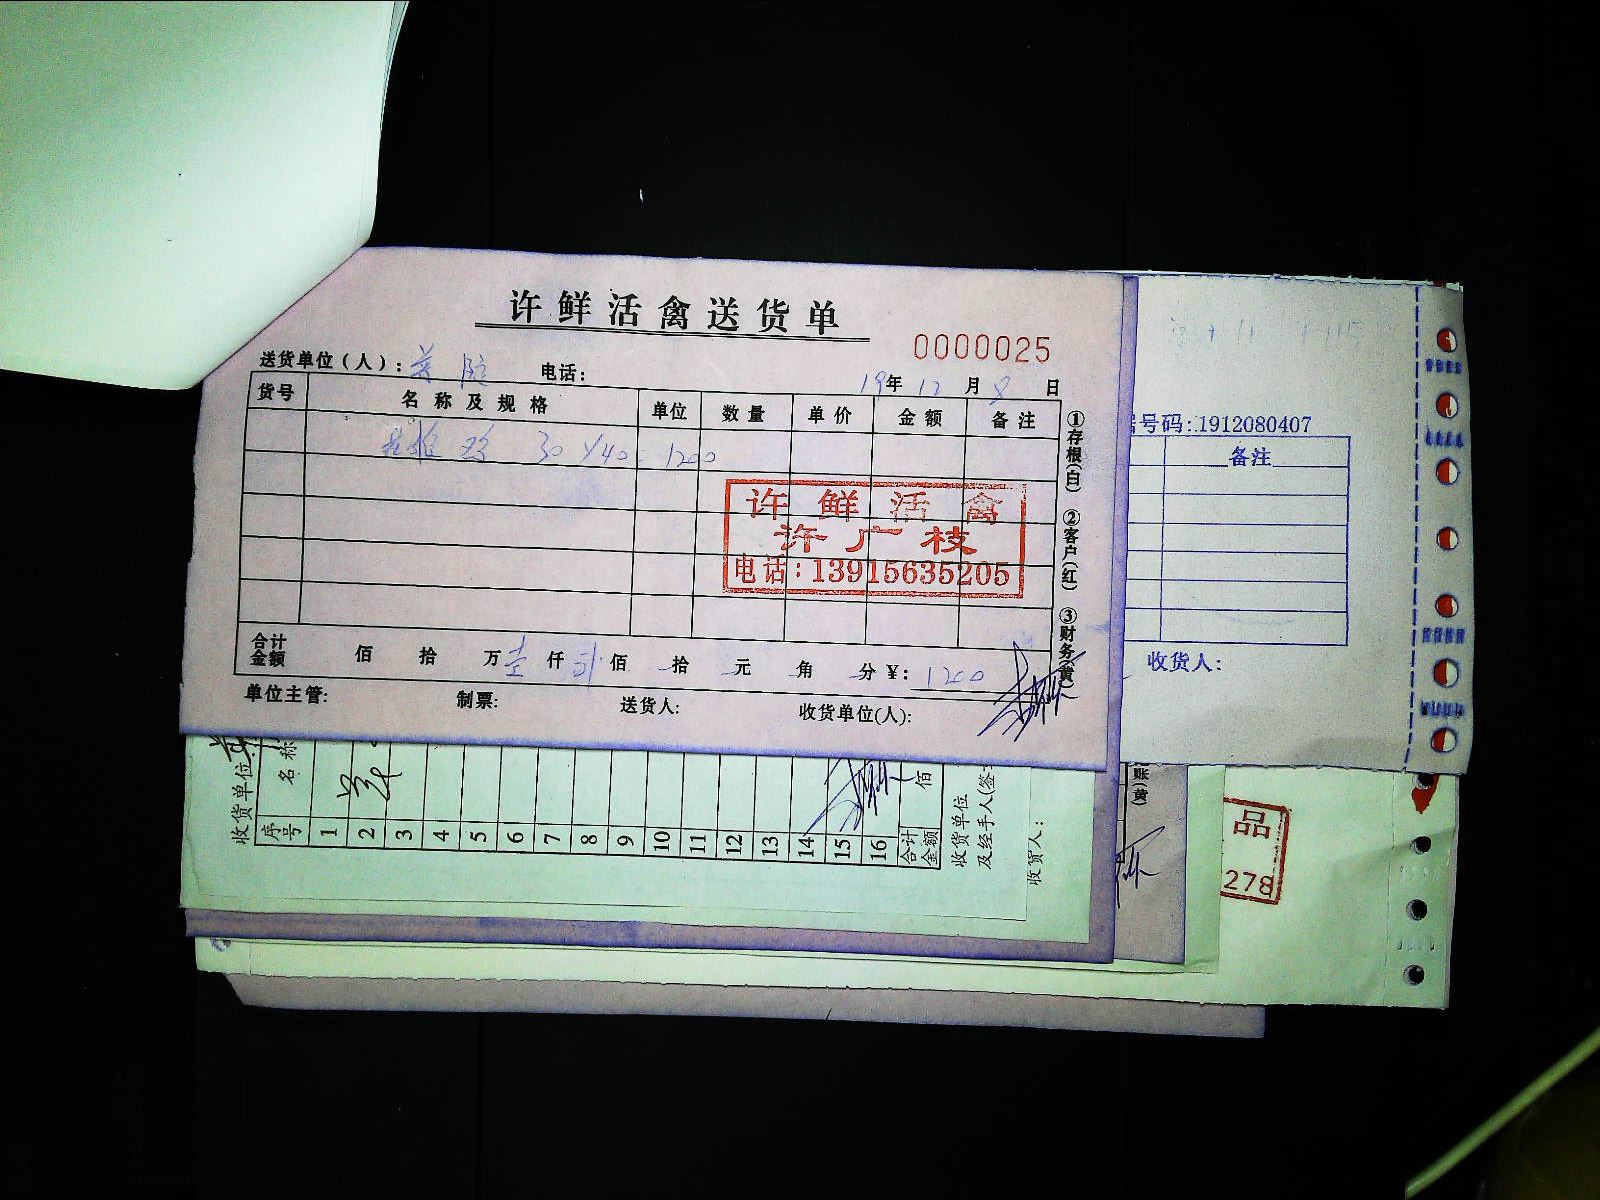 许鲜活禽送货单
0000025
送货单位(人): 电话: 19年12月8日
货号 名称及规格 单位 数量 单价 金额 备注
30 1200
许鲜活禽
许广枝
电话:13915635205
①存根(白) ②客户(红) ③财务(黄)
合计金额 佰 拾 万 壹 仟 佰 拾 元 角 分 ¥: 1200
单位主管: 制票: 送货人: 收货单位(人):
号码:1912080407
备注
收货人:
收货单位
序号 名称
1
2
3
4
5
6
7
8
9
10
11
12
13
14
15
16
合计金额 佰
收货单位
及经手人(签
收货人:
账)(黄)
品
278